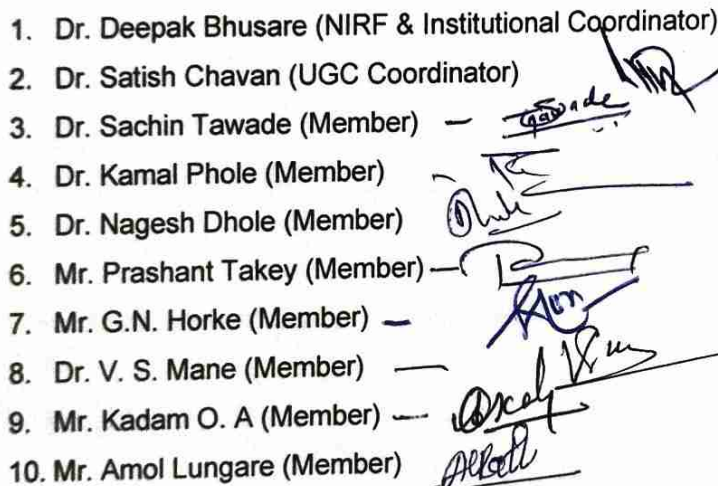 1. Dr. Deepak Bhusare (NIRF & Institutional Coordinator)
2. Dr. Satish Chavan (UGC Coordinator)
3. Dr. Sachin Tawade (Member) —
4. Dr. Kamal Phole (Member)
5. Dr. Nagesh Dhole (Member)
6. Mr. Prashant Takey (Member) —
7. Mr. G.N. Horke (Member) —
8. Dr. V. S. Mane (Member) —
9. Mr. Kadam O. A (Member) —
10. Mr. Amol Lungare (Member)